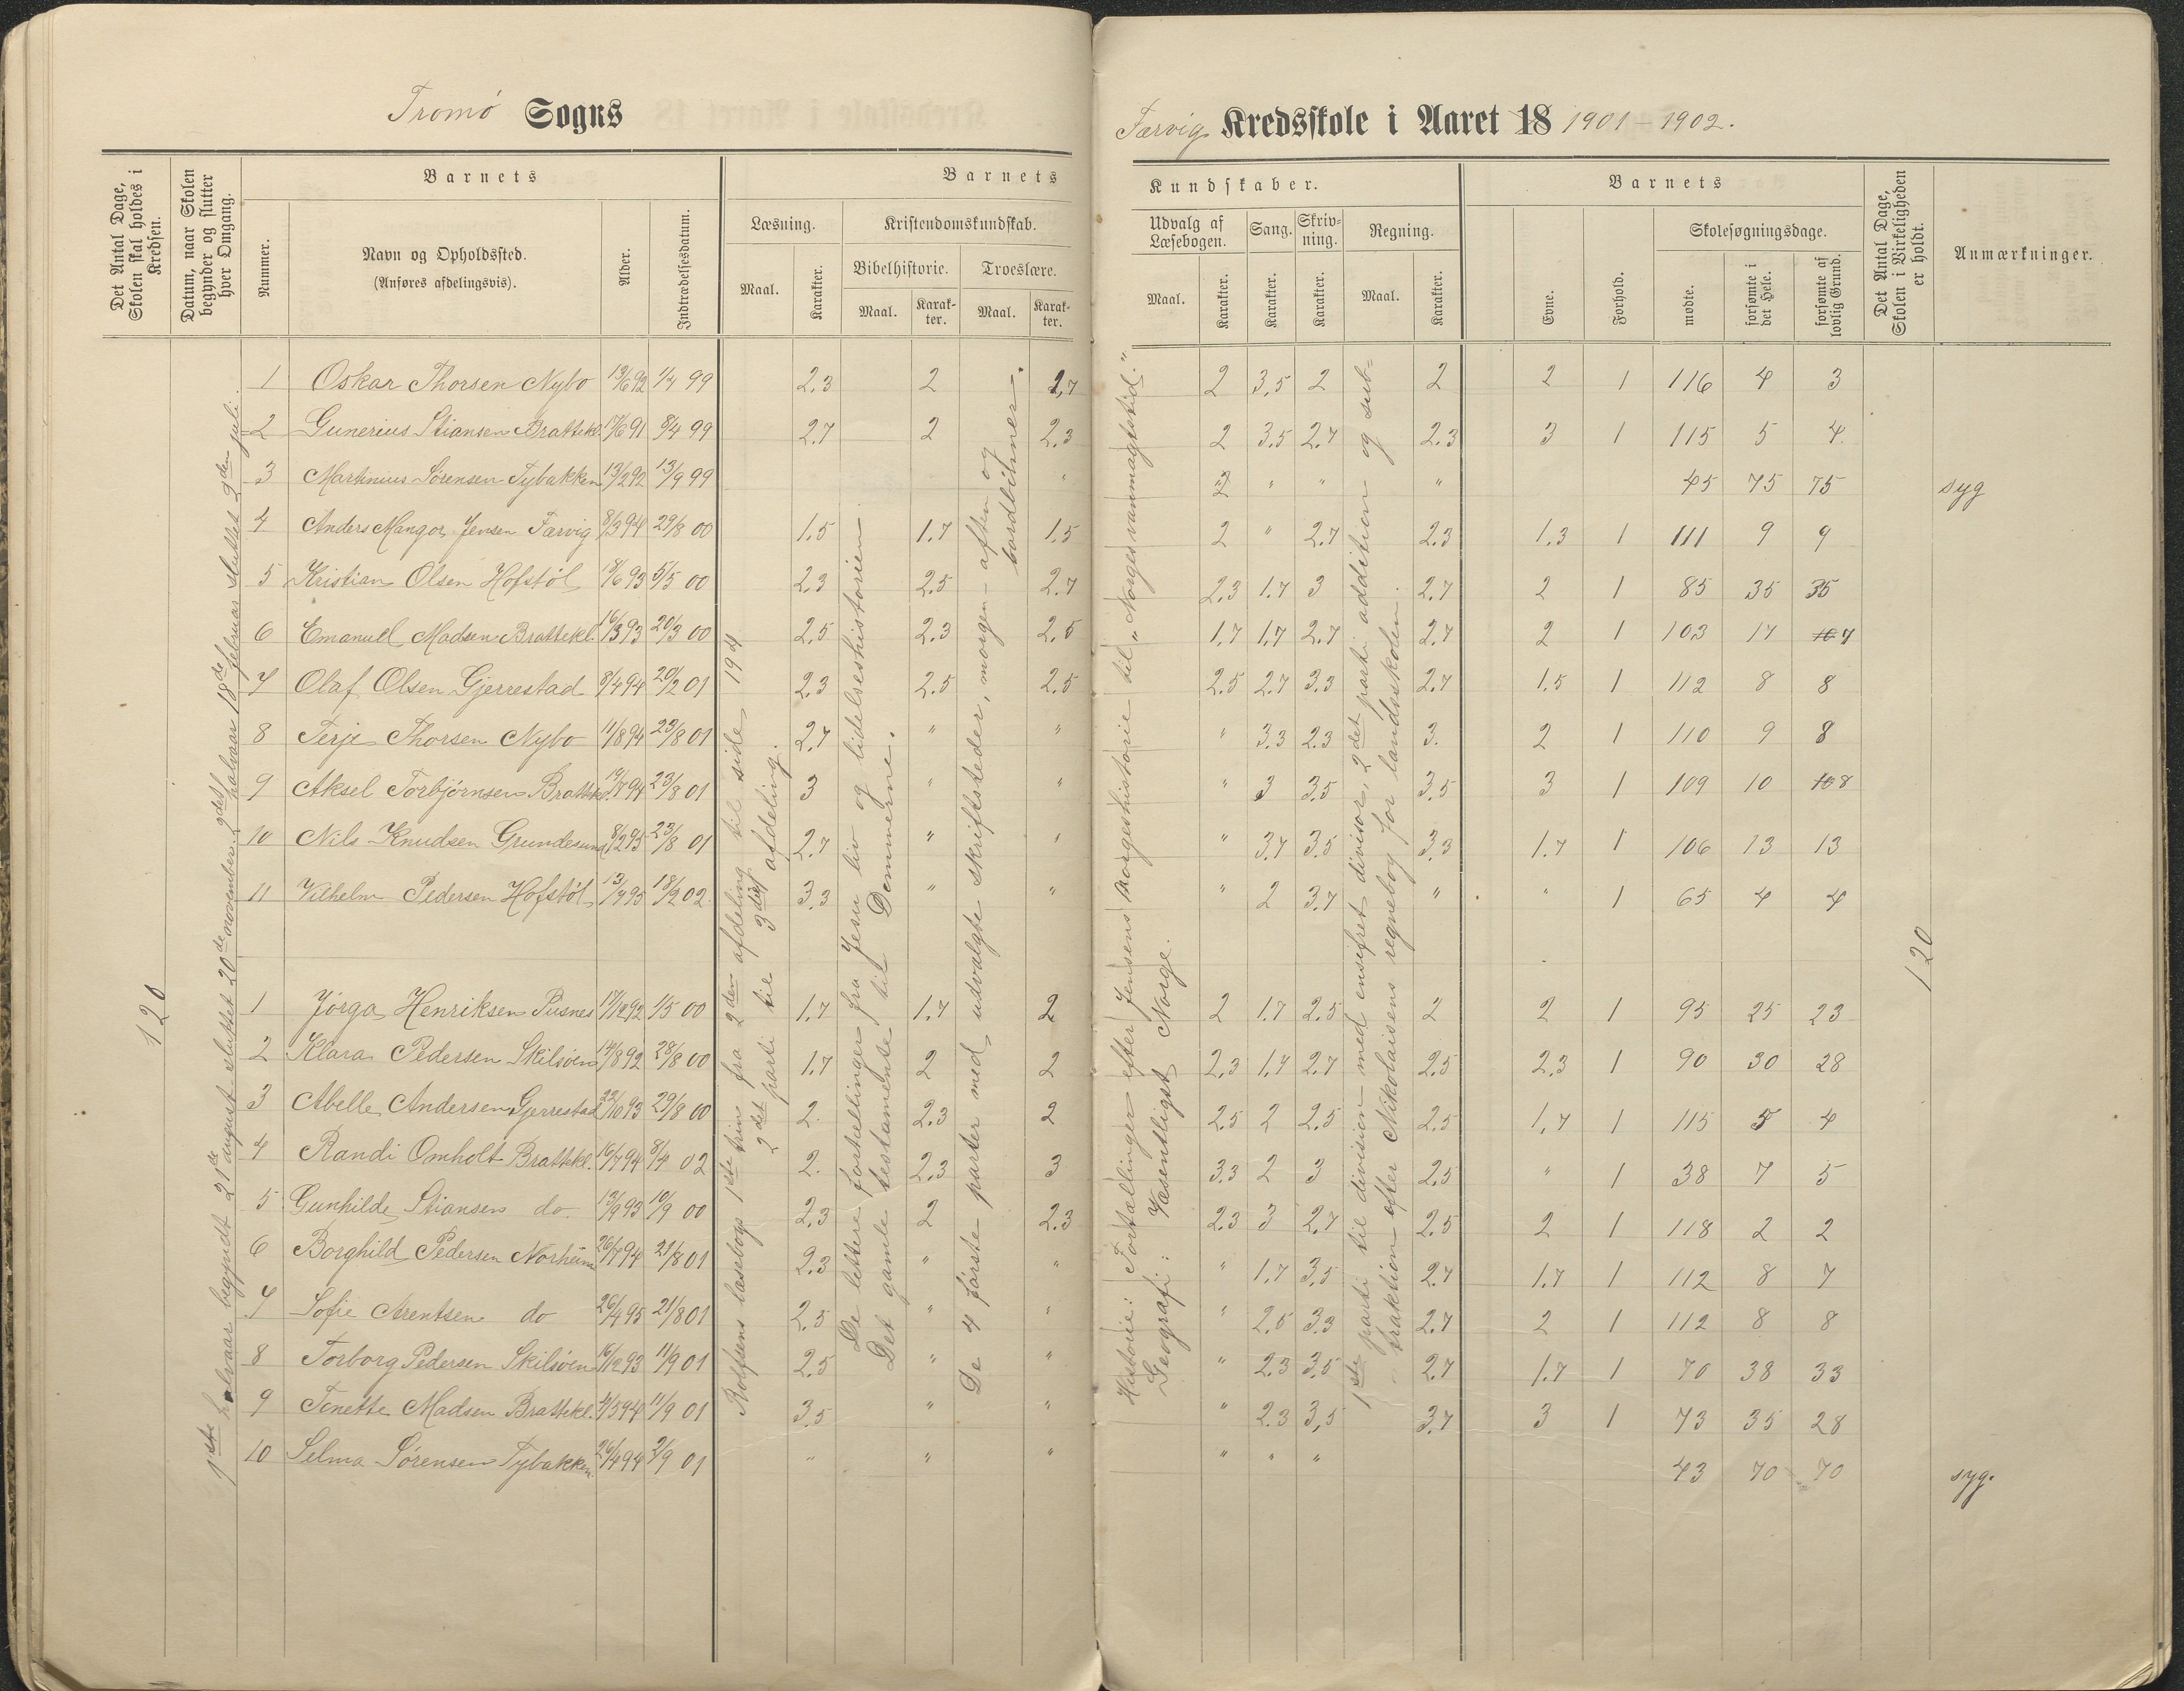 Tromö Sogns
Færvig Kredsskole i Aaret 18 1901-1902.
Det Antal Dage, Skolen skal holdes i Kredsen.
Datum, naar Skolen begynder og slutter hver Omgang.
Barnets
Nummer.
Navn og Opholdssted.
(Anføres afdelingsvis).
Alder.
Indtrædelsesdatum.
Barnets
Læsning.
Maal.
Karakter.
Kristendomskundskab.
Bibelhistorie.
Maal.
Karakter.
Troeslære.
Maal.
Karakter.
Kundskaber.
Udvalg af Læsebogen.
Maal.
Karakter.
Sang.
Karakter.
Skrivning.
Karakter.
Regning.
Maal.
Karakter.
Barnets
Evne.
Forhold.
Skolesøgningsdage.
mødte.
forsømte i det Hele.
forsømte af lovlig Grund.
Det Antal Dage, Skolen i Virkeligheden er holdt.
Anmærkninger.
120
1ste halvaar begyndt 21de august sluttet 20de november. 2det halvaar 18de februar sluttet 2den juli.
Rolfsens læsebogs 1ste trin fra 2den afdeling til side 194
2det parti til 3die afdeling.
De lettere fortællinger fra Jesu liv og lidelseshistorien.
Det gamle testamente til Dommerne.
De 4 første parter med udvalgte skriftsteder, morgen- aften og bordbönner.
Historie: Fortællinger efter Jensens Norgeshistorie til "Norges vanmagtstid."
Geografi: Væsentligst Norge.
1ste parti til division med ensifret divisor, 2det parti addition og subtraktion efter Nikolaisens regnebog for landsskolen.
120
1 Oskar Thorsen Nybo 13/6 92 1/4 99 2.3 2 2,7 2 3,5 2 2 2 1 116 4 3
2 Gunerius Stiansen Brattekl. 17/6 91 8/4 99 2.7 2 2.3 2 3.5 2.7 2.3 3 1 115 5 4.
3 Martinius Sørensen Tybakken 13/2 92 13/9 99 " " " " 45 75 75 syg
4 Anders Mangor Jensen Færvig 8/3 94 29/8 00 1.5 1.7 1.5 2 " 2.7 2.3 1.3 1 111 9 9
5 Kristian Olsen Hofstöl 18/6 93 5/5 00 2.3 2.5 2.7 2.3 1.7 3 2.7 2 1 85 35 35
6 Emanuel Madsen Brattekl. 16/3 93 20/3 00 2.5 2.3 2.5 1.7 1.7 2.7 2.7 2 1 103 17 7
7 Olaf Olsen Gjerrestad 8/4 94 20/2 01 2.3 2.5 2.5 2.5 2.7 3.3 2.7 1.5 1 112 8 8
8 Terje Thorsen Nybo 11/8 94 23/8 01 2.7 " " " 3.3 2.3 3. 2 1 110 9 8
9 Aksel Torbjörnsen Brattekl. 19/7 94 23/8 01 3 " " " 3 3.5 3.5 3 1 109 10 8
10 Nils Knudsen Grundesund 8/2 95 23/8 01 2.7 " " " 3.7 3.5 3.3 1.7 1 106 13 13
11 Vilhelm Pedersen Hofstöl 13/7 95 18/2 02. 3.3 " " " 2 3.7 " " 1 65 4 4
1 Jörga Henriksen Pusnes 17/12 92 1/5 00 1.7 1.7 2 2 1.7 2.5 2 2 1 95 25 23
2 Klara Pedersen Skilsöen 14/8 92 28/8 00 1.7 2 2 2.3 1.7 2.7 2.5 2.3 1 90 30 28
3 Abelle Andersen Gjerrestad 22/10 93 29/8 00 2. 2.3 2 2.5 2 2.5 2.5 1.7 1 115 5 4
4 Randi Omholt Brattekl. 16/7 94 8/4 02 2. 2.3 3 3.3 2 3 2.5 " 1 38 7 5
5 Gunhilde Stiansen do. 13/9 93 10/9 00 2.3 2 2.3 2.3 3 2.7 2.5 2 1 118 2 2
6 Borghild Pedersen Norheim 26/7 94 21/8 01 2.3 " " " 1.7 3.5 2.7 1.7 1 112 8 7
7 Sofie Arentsen do 26/4 95 21/8 01 2.5 " " " 2.5 3.3 2.7 2 1 112 8 8
8 Torborg Pedersen Skilsöen 16/12 93 11/9 01 2.5 " " " 2.3 3.5 2.7 1.7 1 70 38 33
9 Tenette Madsen Brattekl. 4/5 94 11/9 01 3.5 " " " 2.3 3,5 3.7 3 1 73 35 28
10 Selma Sørensen Tybakken. 26/4 94 2/9 01 " " " " " " 43 70 70 syg.